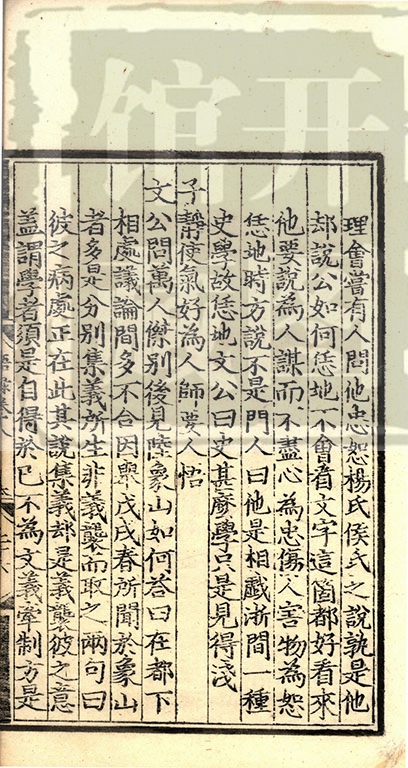 理會嘗有人問他忠恕楊氏侯氏之說孰是他
却說公如何恁地不會看文字這箇都好看來
他要說為人謀而不盡心為忠傷人害物為恕
恁地時方說不是門人曰他是相戲浙間一種
史學故恁地文公曰史甚麽學只是見得淺
子靜使氣好為人師要人悟
文公問萬人傑別後見陸象山如何答曰在都下
相處議論間多不合因舉戊戌春所聞於象山
者多是分別集義所生非義襲而取之兩句曰
彼之病處正在此其說集義却是義襲彼之意
蓋謂學者須是自得於己不為文義牽制方是